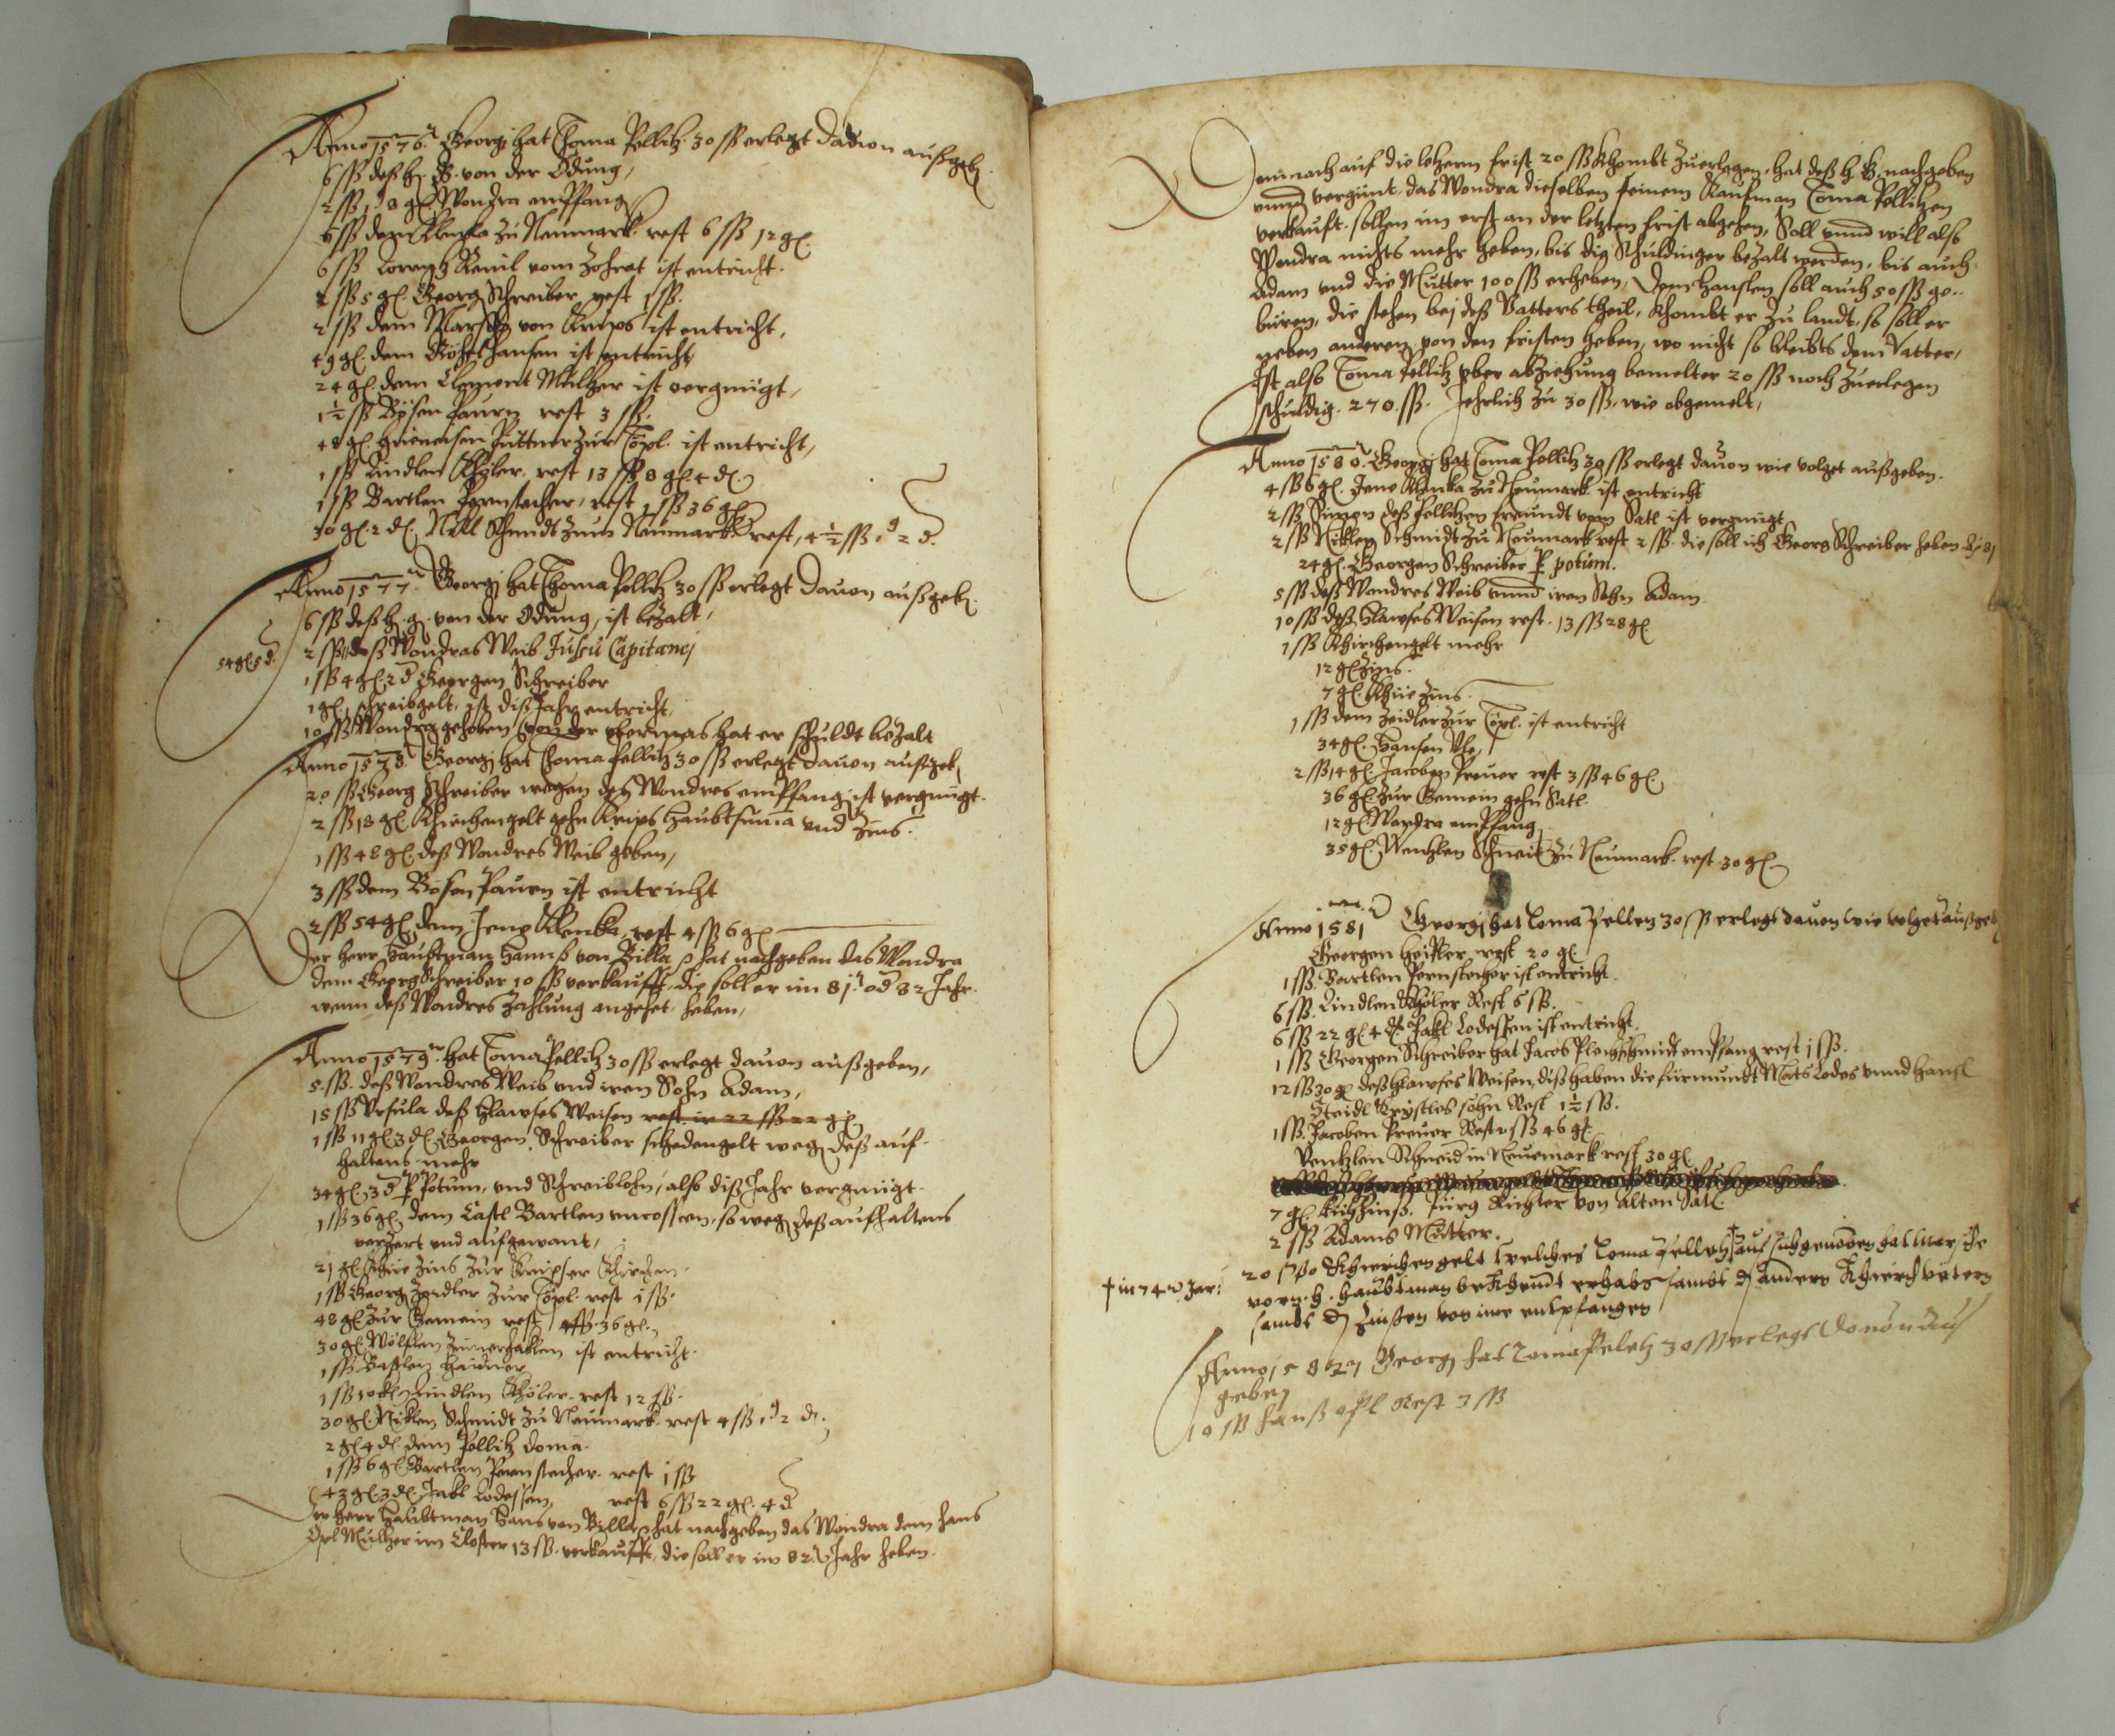 Anno 1576 Georgj hat Thoma Pellitz 30 ßß erlegt dauon außgeb
6 ßß deß h. G. von der Ödung,
2 ßß 18 gl. Wondra empfang
5 ßß dem Klenka zu Neumark rest 6 ßß 12 gl.
6 ßß Lorentz vom ist entricht.
2 ßß 5 gl. Georg Schreiber rest 1 ßß.
2 ßß dem von Krips ist entricht,
49 gl. dem Hansen ist entricht
24 gl. dem Clement Mulher ist vergnügt,
1½ ßß Bösen Paurn rest 3 ßß.
48 gl. Püttner zur Töpl. ist entricht,
1 ßß Lindlen Khöler. rest 13 ßß 8 gl. 4 d.
1 ßß Bartlen Pernstecher, rest 1 ßß 36 gl.
30 gl. 2 d. Nikl Schmidt zum Neumark rest, 4½ ßß 2 d.
Anno 1577 Georgj hat Thoma Pellitz 30 ßß erlegt dauon außgeb
6 ßß deß h. g. von der Ödung, ist bezalt,
54 gl. 5 d.
2 ßß deß Wondras Weib Jussu Capitanej
1 ßß 4 gl. 2 d Georgen Schreiber
1 gl. schreibgelt, ist diß Jahr entricht,
10 ßß Wondra gehoben von der vbermas hat er schuldt bezalt
Anno 1578 Georgj hat Thoma Pellitz 30 ßß erlegt dauon außgeb
20 ßß Georg Schreiber wegen deß Wondres empfang ist vergnügt.
2 ßß 18 gl. Khirchengelt gehn Krips Haubtsuma vnd Zins.
1 ßß 48 gl. deß Wondres Weib geben,
3 ßß dem Bösen Paurn ist entricht
2 ßß 54 gl. dem Jene Klenka, rest 4 ßß 6 gl.
Der herr Haubtman Hannß von Billa hat nachgeben das Wondra
dem Georg Schreiber 10 ßß verkaufft, die soll er im 81 od 82 Jahr.
wenn deß Wondres Zahlung angehet heben,
Anno 1579 hat Toma Pellitz 30 ßß erlegt dauon außgeben,
5 ßß. deß Wondres Weib vnd iren Sohn Adam,
15 ßß Vrsula deß Hlawses Weisen rest ir 22 ßß 22 gl.
1 ßß 11 gl. 3 d. Georgen Schreiber schedengelt weg deß auf-
haltens mehr
34 gl. 3 d P Potum, vnd Schreiblohn, also diß Jahr vergnügt.
1 ßß 36 gl. dem Castl Bartlen so weg deß aufhaltens
verzert vnd aufgewant,
21 gl. Khüe Zins zur Kripser Khirchen.
1 ßß Georg Zeidler zur Töpl. rest 1 ßß.
48 gl. zur Gemein rest 4 ßß. 36 gl.
30 gl. Wölflen ist entricht.
1 ßß Bastlen
1 ßß 10 gl. Lindlen Khöler. rest 12 ßß.
30 gl. Niklen Schmidt zu Neumark rest 4 ßß 2 d.
2 gl. 4 d. dem Pellitz doma.
1 ßß 6 gl. Bartlen Pernstecher. rest 1 ßß
43 gl. 3 d. Jakl Lodessen, rest 6 ßß 22 gl. 4 d
Der herr Haubtman Hans von Billa hat nachgeben das Wondra dem Hans
Öpl Mulher im Closter 13 ßß. verkaufft, die soll er im 82 Jahr heben.
Demnach auf die letzern frist 20 ßß khombt zuerlegen, hat deß h. G. nachgeben
vnnd vergünt, das Wondra dieselben seinem Kaufman Toma Pellitzen
verkauft. sollen im erst an der letzten frist abgehen, Soll vnnd will also
Wondra nichts mehr heben, bis die Schuldiger bezalt werden, bis auch
Adam vnd die Mutter 100 ßß erheben, Dem Hanslen soll auch 50 ßß ge-
büren, die stehen bej deß Vatters theil, khombt er zu landt, so soll er
neben anderen von den fristen heben, wo nicht so bleibts dem Vatter,
Ist also Toma Pellitz vber abziehung bemelter 20 ßß noch zuerlegen
schuldig. 270 ßß. Jehrlich zu 30 ßß. wie obgemelt,
Anno 1580. Georgj hat Toma Pellitz 30 ßß erlegt dauon wie volget außgeben.
4 ßß 6 gl. Jene Klenka zu Neumark ist entricht
2 ßß Simon deß Pellitzen freundt vom Satl ist vergnügt
2 ßß Niklen Schmidt zu Neumark rest 2 ßß. die soll ich Georg Schreiber heben
24 gl. Georgen Schreiber P potum.
5 ßß deß Wondres Weib vnnd iren Sohn Adam
10 ßß deß Hlawses Weisen rest. 13 ßß 28 gl.
1 ßß Khirchengelt mehr
12 gl. Zins.
7 gl. Khüe Zins.
1 ßß dem Zeidler zur Töpl. ist entricht
34 gl. Hansen
2 ßß 14 gl. Jacoben Preuer rest 3 ßß 46 gl.
36 gl. zur Gemein gehn Satl.
12 gl. Wondra empfang
35 gl. Wentzlen Schneid zu Neumark. rest 30 gl.
Anno 1581 Georgj hat Toma Pelletz 30 ß erlegt dauon wie volget außgeb
Georgen rest 20 gl.
1 ßß. Bartlen Pernstecher ist entricht.
6 ßß. Lindlen Khöler Rest 6 ßß.
6 ßß 22 gl. 4 d. Jakl Lodessen ist entricht.
1 ßß Georgen Schreiber hat Jacob empfang rest 1 ßß.
12 ßß 30 gl. deß Hlawses Weisen, diß haben die fürmundt Mats Lodes vnnd Hansl
Steidl Cristles sohn Rest 1½ ßß.
1 ßß. Jacoben Preuer Rest 2 ßß 46 gl.
Wentzlen Schneid in Neuemark rest 30 gl.
7 gl. Kühzinß. Jürg Richter von alten Satl
2 ßß Adams Mutter.
20 ßß Khierchengelt welches Toma Pelletz
† in 74 Jar:
vom h. haubtman sambt andern Khierchvätern
sambt Zinßen von ime entpfangen
Anno 1582 Georgj hat Toma Peletz 30 ßß erlegt dauon aus
geben
10 ßß Hanß öpl Rest 3 ßß